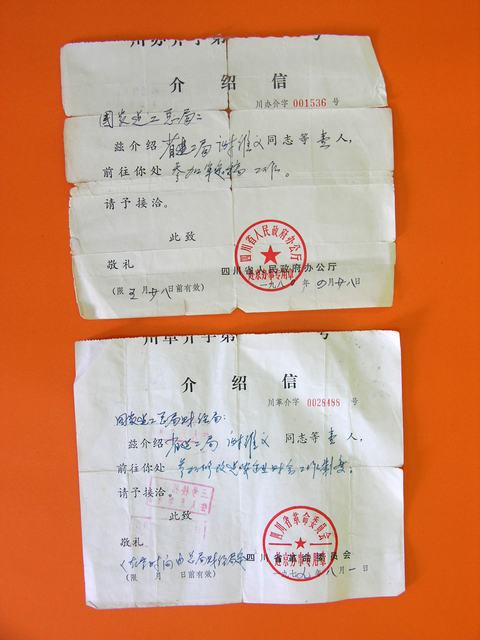 川办介字第 号
介绍信
川办介字 001536 号
国家建工总局：
兹介绍省建二局 同志等壹人，
前往你处参加 工作。
请予接洽。
此致
敬礼
四川省人民政府办公厅
赴京办事专用章
四川省人民政府办公厅
（限五月廿八日前有效） 一九八〇年四月廿八日
川革介字第 号
介绍信
川革介字 0028488 号
国家建工总局财经局：
兹介绍省建二局 同志等壹人，
前往你处参加修改建筑企业财会工作制度。
请予接洽。
此致
敬礼
四川省革命委员会
赴京办事专用章
四川省革命委员会
（限 月 日前有效） 一九七九年八月一日